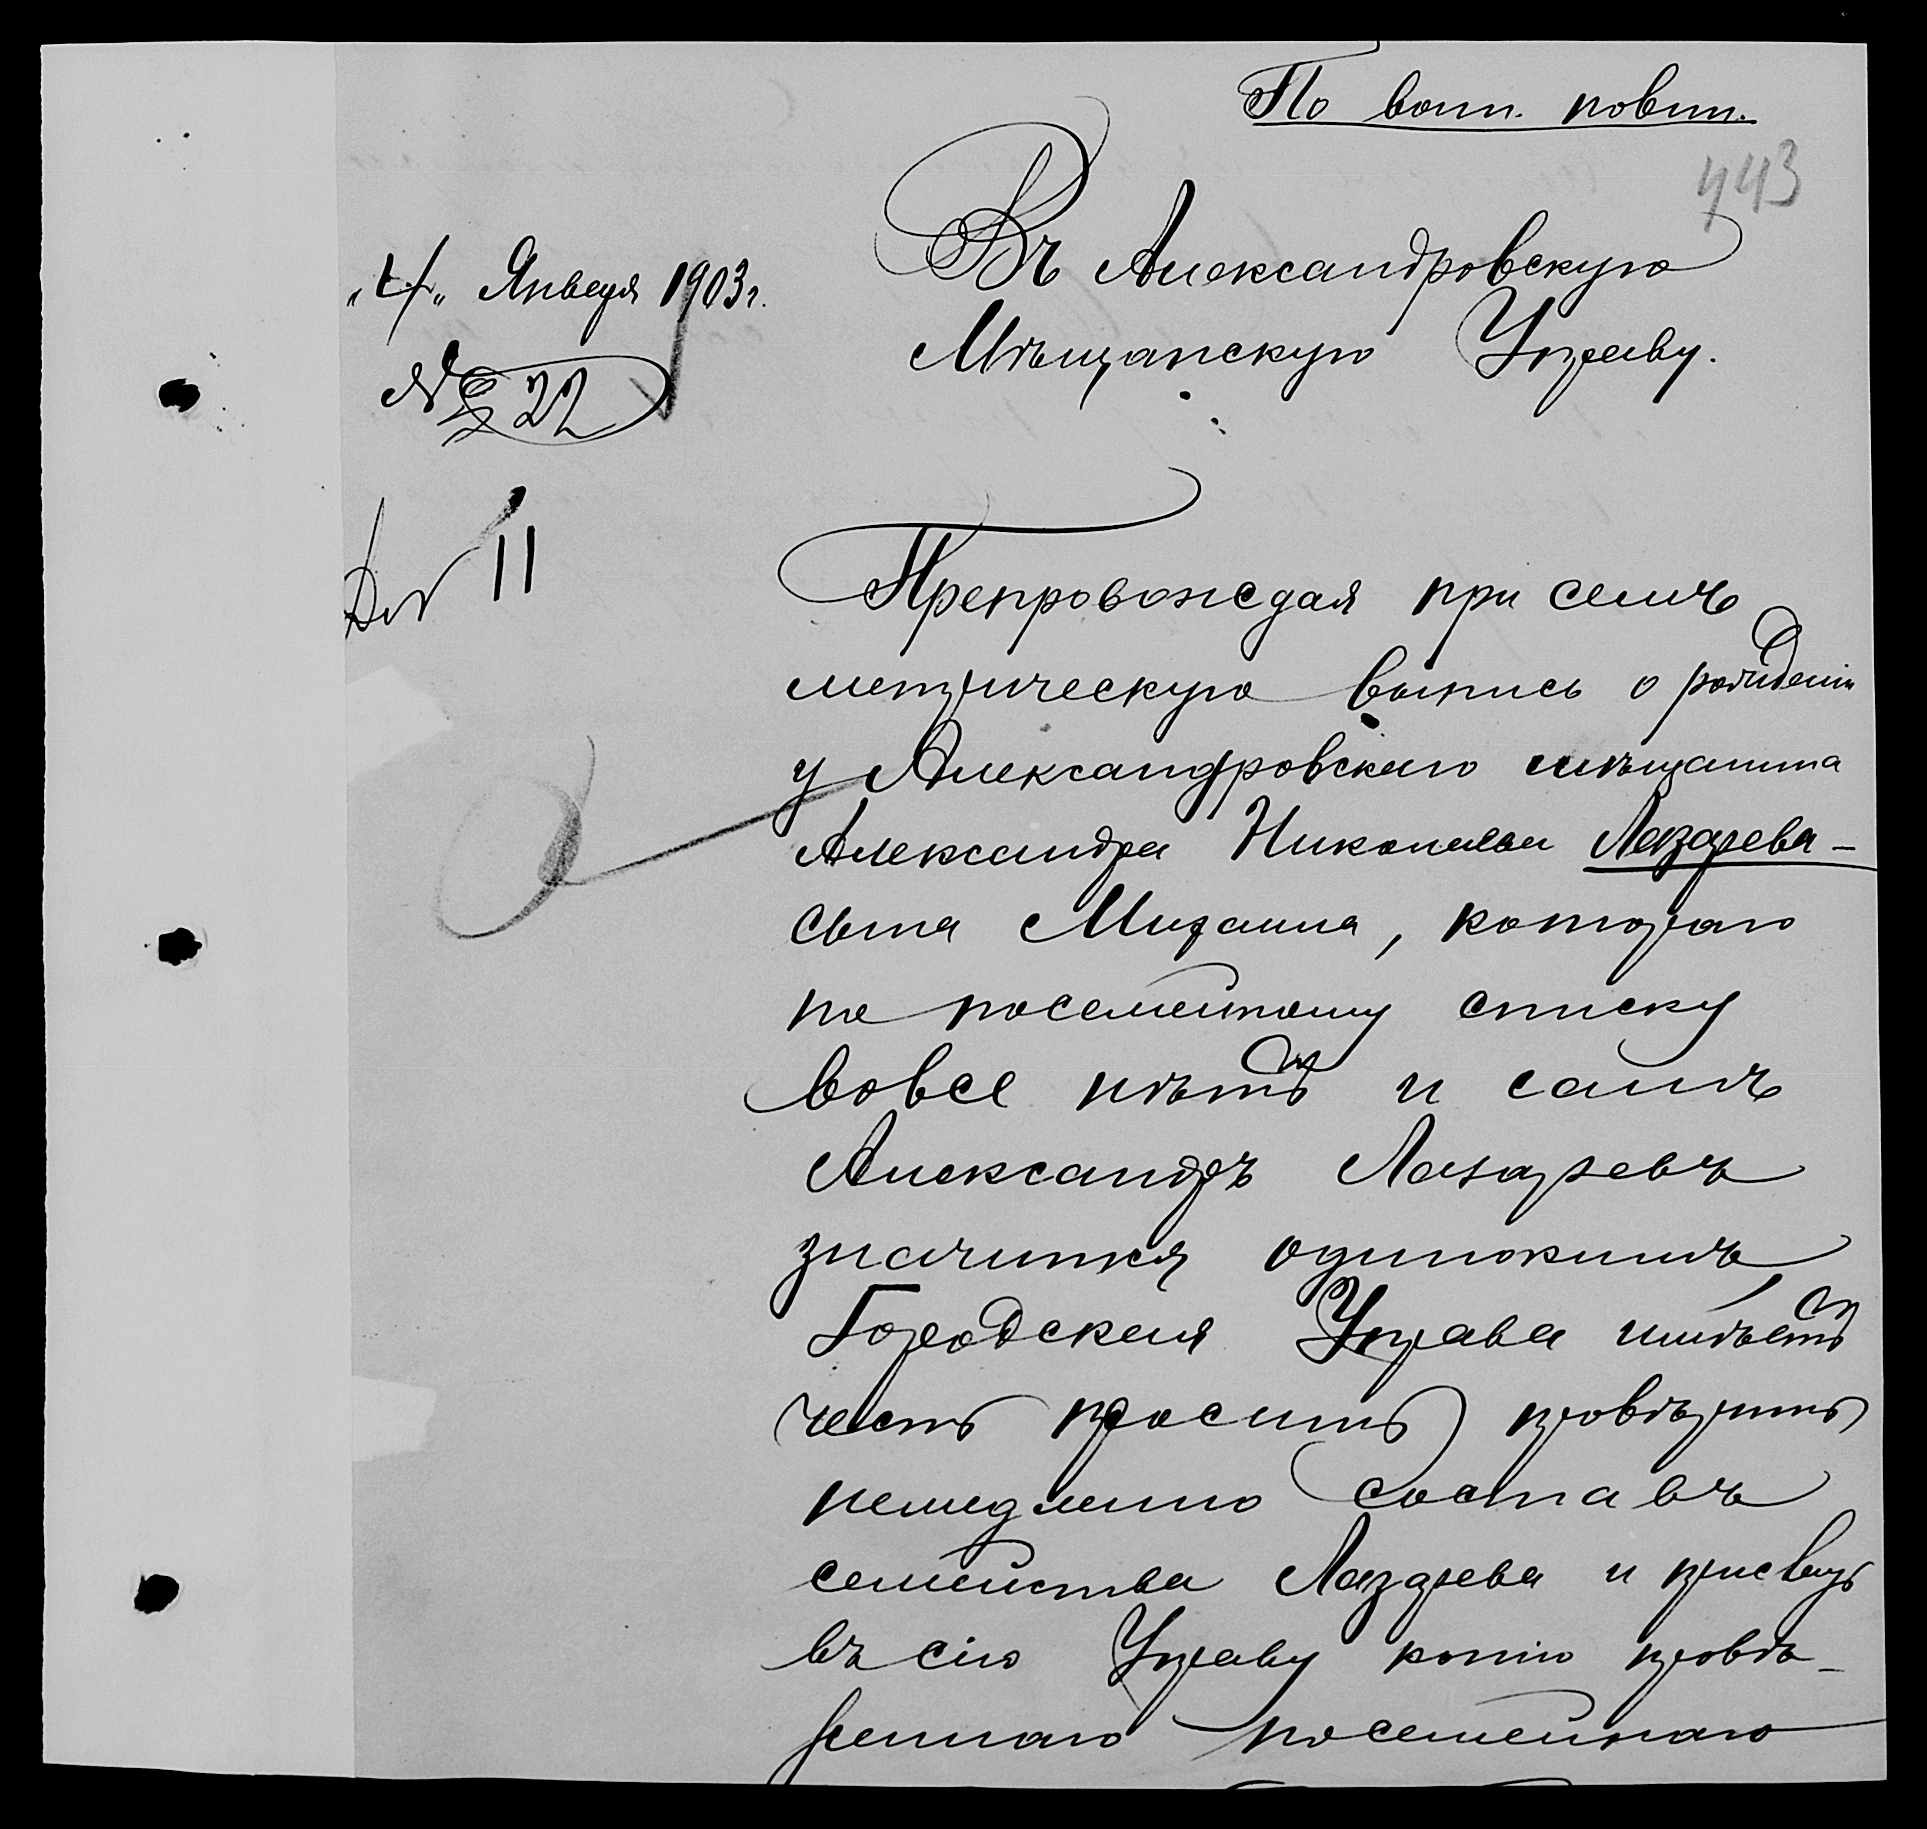 По воин. повин.
443
Въ Александровскую
„4„ Января 1903 г.
Мѣщанскую Управу.
№ 22
11
Препровождая при семъ
метрическую выпись о рожденіи
у Александровскаго мѣщанина
Александра Николаева Лазарева –
сына Михаила, котораго
по посемейному списку
вовсе нѣтъ и самъ
Александръ Лазаревъ
значится одинокимъ,
Городская Управа имѣетъ
честь просить провѣрить
немедленно составъ
семейства Лазарева и прислать
въ сію Управу копію провѣ-
реннаго посемейнаго